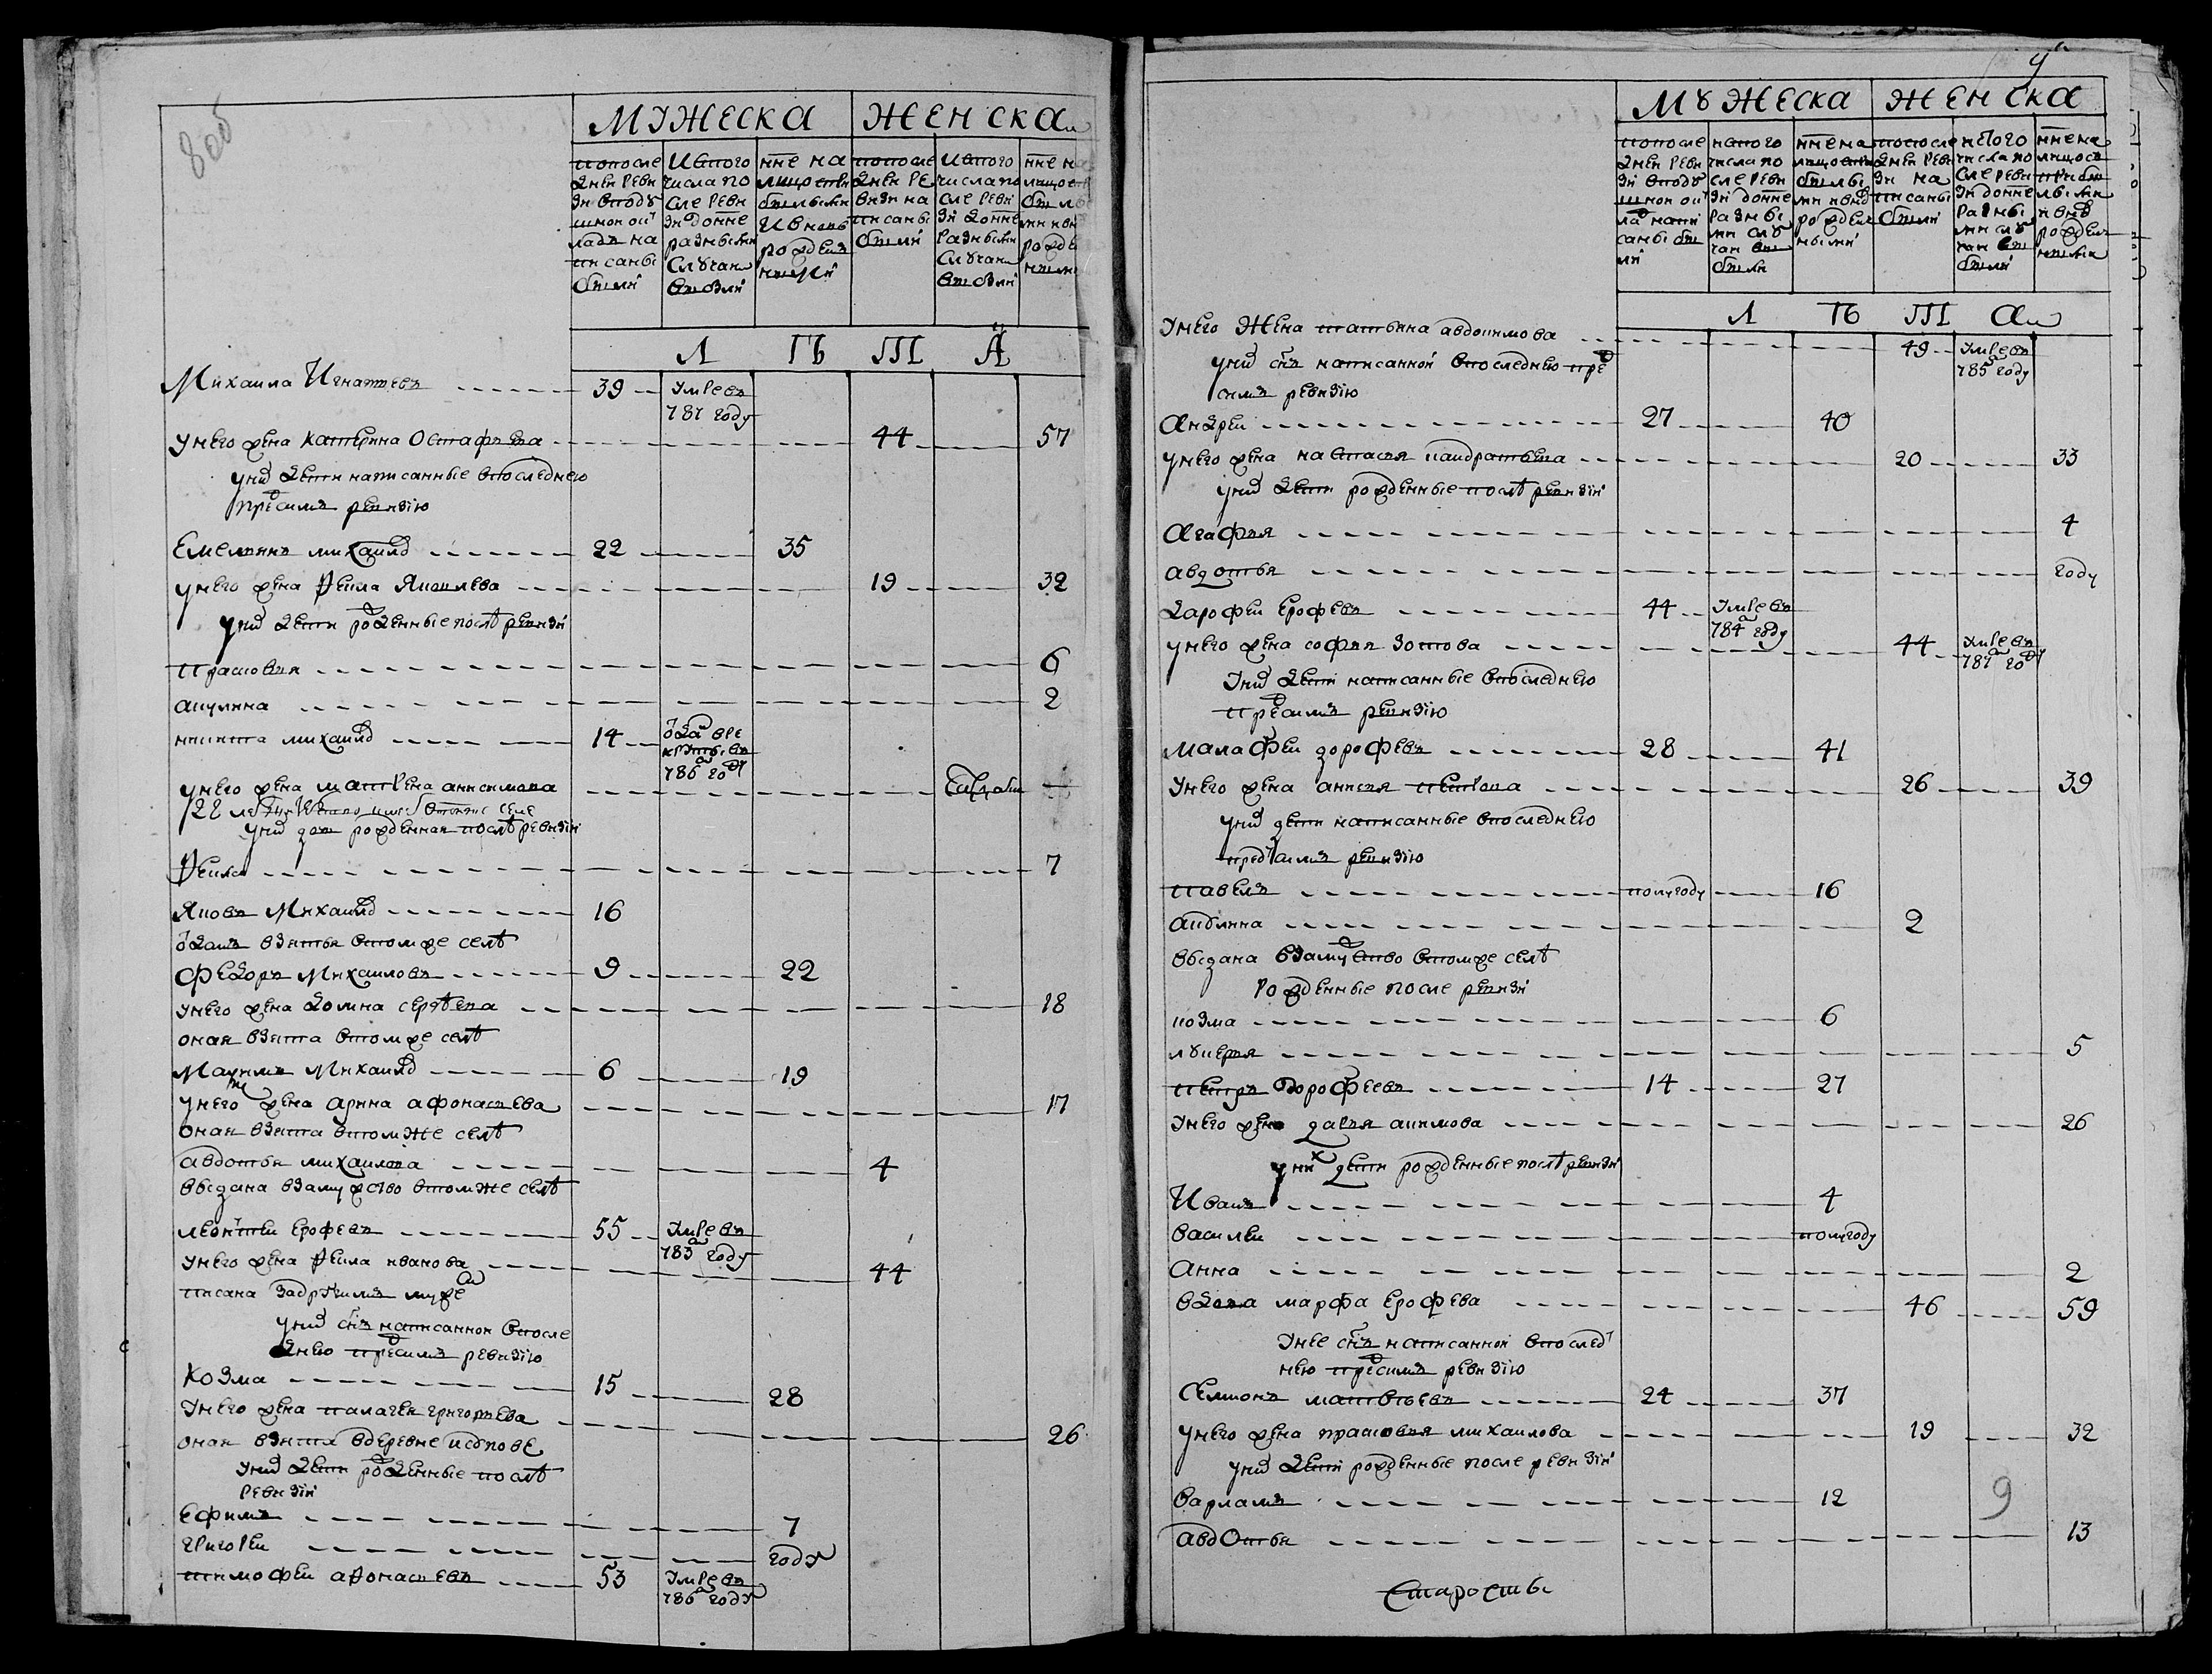 8 об
МУЖЕСКА ЖЕНСКА
по после
дней реви
зи в поду
шной ок
ладъ на
писаны
были
И с того
числа по
сле реви
зи до нне
разными
случаи
выбыли
нне на
лицо с при
былыми
И вновь
рожден
ными
по после
дней ре
визи на
писаны
были
И с того
числа по
сле реви
зи до нне
разными
случаи
выбыли
Л ТЪ ТЫ А
Михаила Игнатьевъ 39 Умре въ
787 году
у него жена катерина Остафьева 44 57
у них дети написанные в последнею
пред симъ ревизию
Емельянъ михаилов 22 35
у него жена Фекла Яковлева 19 32
у них дети рожденные послѣ ревизи
прасковья 6
акулина 2
никита михаилов 14 Отдан в ре
круты въ
786 году
у него жена матрена анисимова
у них дочь рожденная послѣ ревизи
Фекла 7
Яковъ Михаилов 16
отданъ в зятья в том же селѣ
Федоръ Михаиловъ 9 22
у него жена домна сергѣева 18
оная взята в том же селѣ
Маѯимъ Михаилов 6 19
у него жена арина афонасьева 17
оная взята в том же селѣ
авдотья михаилова 4
выдана в замужство в том же селѣ
леонтеи ерофеевъ 55 Умре въ
783 году
у него жена Фекла иванова 44
писана за другимъ мужем
у них снъ написаннои в после
днею пред симъ ревизию
Козма 15 28
у него жена палагея григорьева 26
оная взята в деревне
у них дети рожденные послѣ
ревизии
Ефимъ 7
григореи году
тимофеи афонасьевъ 53 Умре въ
786 году
9
МУЖЕСКА ЖЕНСКА
по после
дней реви
зи в поду
шной ок
ладъ напи
саны бы
ли
ис того
числа по
сле реви
зи до нне
разны
ми слу
чаи вы
были
нне на
лицо с при
былы
ми и внов
рожден
ными
по после
дней реви
зи на
писаны
были
ис того
числа по
сле реви
зи до нне
разны
ми слу
чаи вы
были
нне на
лицо с
прибы
лыми
и внов
рожден
ными
Л ТЪ ТЫ А
У него Жена татьяна авдокимова 49 Умре въ
785 году
у них снъ написанной в последнею пред
симъ ревизию
Андреи 27 40
у него жена настасья кандратьева 20 33
у них дети рожденные послѣ ревизии
Агафья 4
авдотья году
дарофеи ерофеевъ 44 Умре въ
784 году
у него жена софья зотова 44 Умре въ
787 году
У них дети написанные в последнею
пред симъ ревизию
малафеи дорофеевъ 28 41
У него жена анисья петрова 26 39
у них дети написанные в последнею
пред симъ ревизию
павелъ полугоду 16
акулина 2
выдана в замужство в том же селѣ
рожденные после ревизи
козма 6
лукерья 5
петръ дорофеевъ 14 27
У него жена дарья акимова 26
у них дети рожденные послѣ ревизи
Иванъ 4
василеи полугоду
Анна 2
вдова марфа ерофеева 46 59
У нее снъ написанной в послед
нею пред симъ ревизию
Семионъ матвеевъ 24 37
у него жена прасковья михаилова 19 32
у них дети рожденные после ревизии
варламъ 12
9
авдотья 13
Старосты